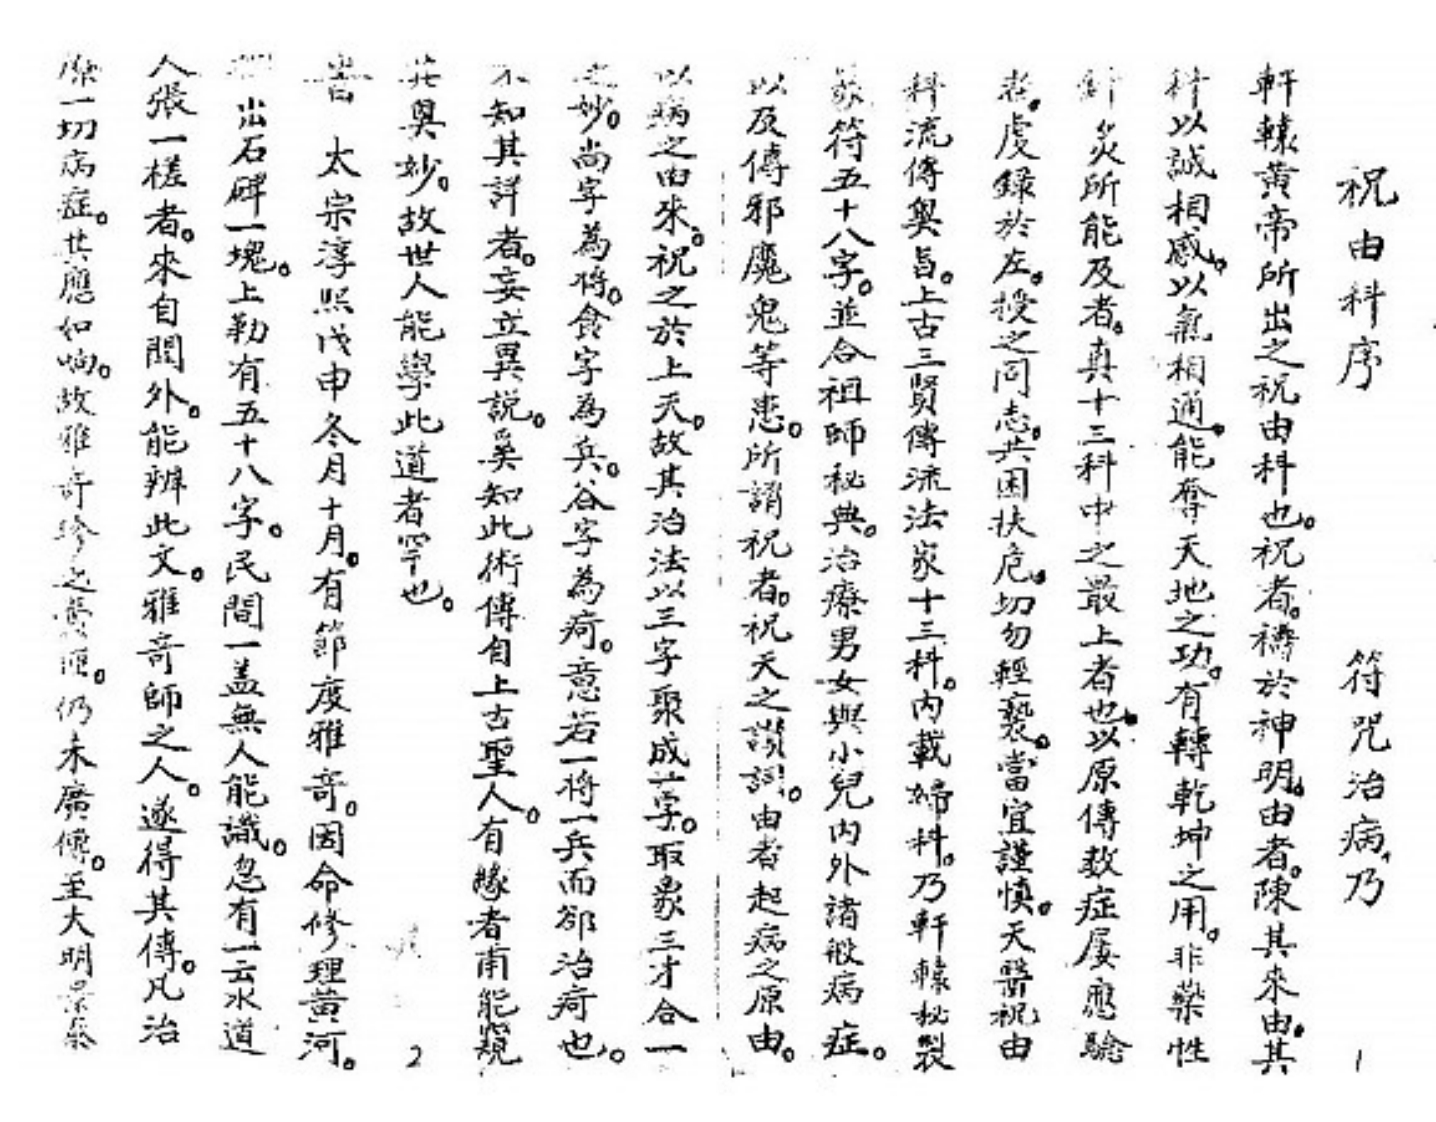 祝由科序　符咒治病,乃
軒轅黃帝所出之祝由科也。祝者。禱於神明。由者。陳其來由。其
科以誠相感。以氣相通。能奪天地之功。有轉乾坤之用。非藥性
針灸所能及者。真十三科中之最上者也。以原傳数症屢應驗
者。虔錄於左。授之同志。共困扶危。切勿輕褻。當宜謹慎。天醫祝由
科流傳奧旨。上古三賢傳流法家十三科。內載締科。乃軒轅秘製
符五十八字。並合祖師秘典。治療男女與小兒內外諸般病症。
以及傳邪魔鬼等患。所謂祝者。祝天之讚詞。由者起病之原由。
以病之由來。祝之於上天。故其治法以三字聚成一字。取象三才合一
之妙。尚字為將。食字為兵。谷字為疴。意若一將一兵而卻治疴也。
不知其詳者。妄立異說。奚知此術傳自上古聖人。有緣者甫能窺
其奧妙。故世人能學此道者罕也。
2
太宗淳熙戊申冬月十月。有節度雅奇。因命修理黃河。
出石碑一塊。上勒有五十八字。民間一盖無人能識。忽有一云水道
人張一槎者。來自關外。能辨此文。雅奇師之人。遂得其傳。凡治
療一切病症。其應如响。故雅奇珍之。仍未廣傳。至大明景泰